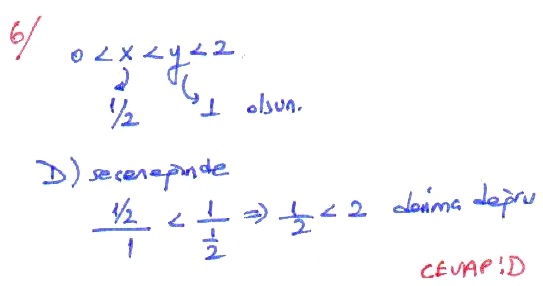 6/
0 < x < y < 2
1/2 1 olsun.
D) seçeneğinde
(1/2)/1 < 1/(1/2) ⇒ 1/2 < 2 daima doğru
CEVAP: D